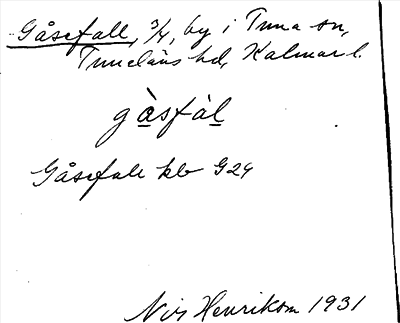 Gåsefall, 3/4, by i Tuna sn,
Tunaläns hd, Kalmar l.
gàsfàl
Gåsefall kb G24
Nils Henrikson 1931